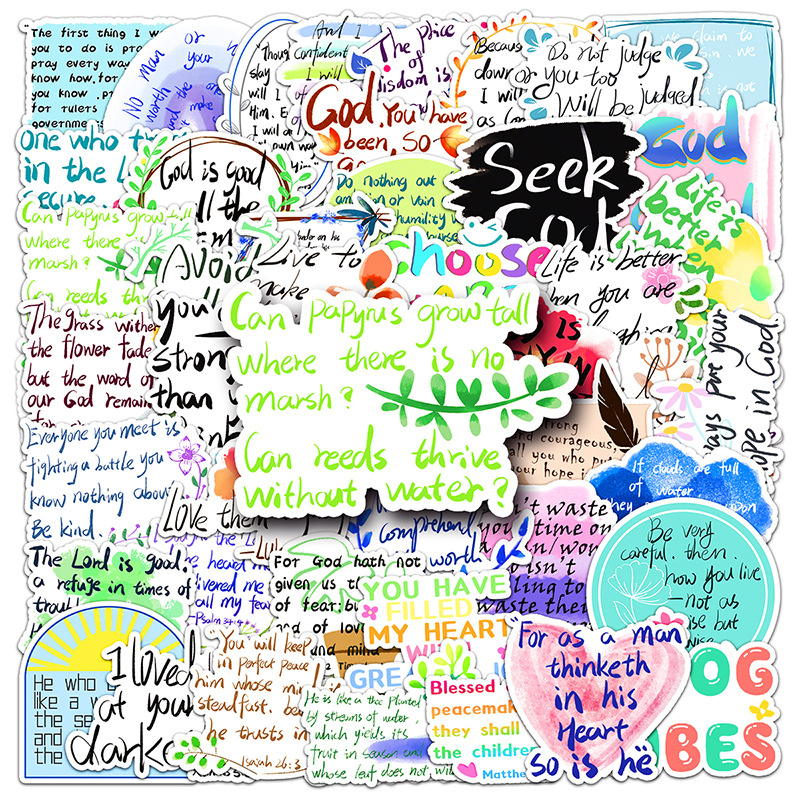 The first thing I w
you to do is pra
pray every way
know how, for
you know, pr
for rulers
governments
No man or
worth
and the
make
Thoug
slay
Confident
And I
I will
Him.
I will
own
The price
of
wisdom is
Because
down
I will
Do not judge
or you too
Will be judged
claim to
sin. we
God, You have
been, So
One who tr
in the L
secure.
God is good
all the
Do nothing out
or vain
humility
Seek
God
God
Life is
better
when
Can Papyrus grow tall
where there
marsh?
Can reeds th
Avoid
Live to
make
choose
Life is better
when you are
laughing
The grass wither
the flower fade
but the word o
our God remain
you
stron
than
Can papyrus grow tall
where there is no
marsh?
Can reeds thrive
without water?
is
strong
and courageous,
all you who put
your hope i
ays put your
ope in God.
Everyone you meet is
fighting a battle you
know nothing abou
Be kind.
Love them
comprehend
worth
n't waste
time on
n/wom
isn't
ling to
waste their
If clouds are full
of water
they
upon
Be very
careful, then,
how you live
—not as
ise but
wise
The Lord is good,
a refuge in times of
troub
he heard m
livered me
all my fea
—Psalm 34:4
For God hath not
given us th
of fear; bu
and of lov
and mind
2 Tim
YOU HAVE
FILLED
MY HEART
WI
GRE
JO
He who
like a w
the se
and
the
I loved
at your
darke
You will keep
in Perfect Peace
him whose mi
steadfast, be
he trusts in
Isaiah 26:3
He is like a tree Planted
by streams of water,
which yields its
fruit in season and
whose leaf does not wi
Blessed
peacemak
they shall
the children
Matthe
"For as a man
thinketh
in his
Heart
so is he
OG
BES